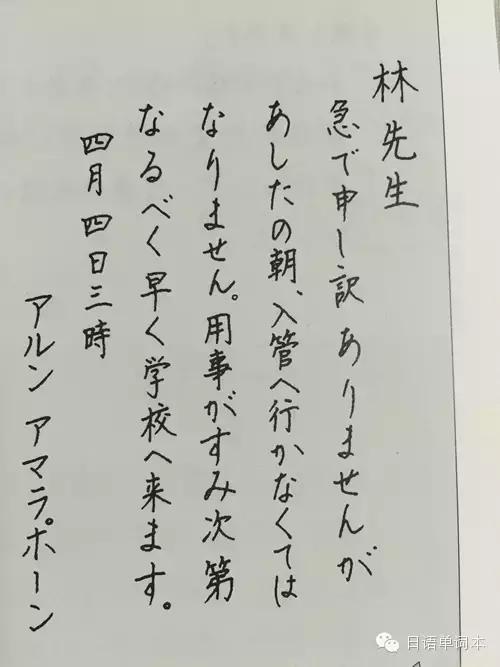 林先生
急で申し訳ありませんが
あしたの朝、入管へ行かなくては
なりません。用事がすみ次第
なるべく早く学校へ来ます。
四月四日三時
アルン アマラポーン
日语单词本